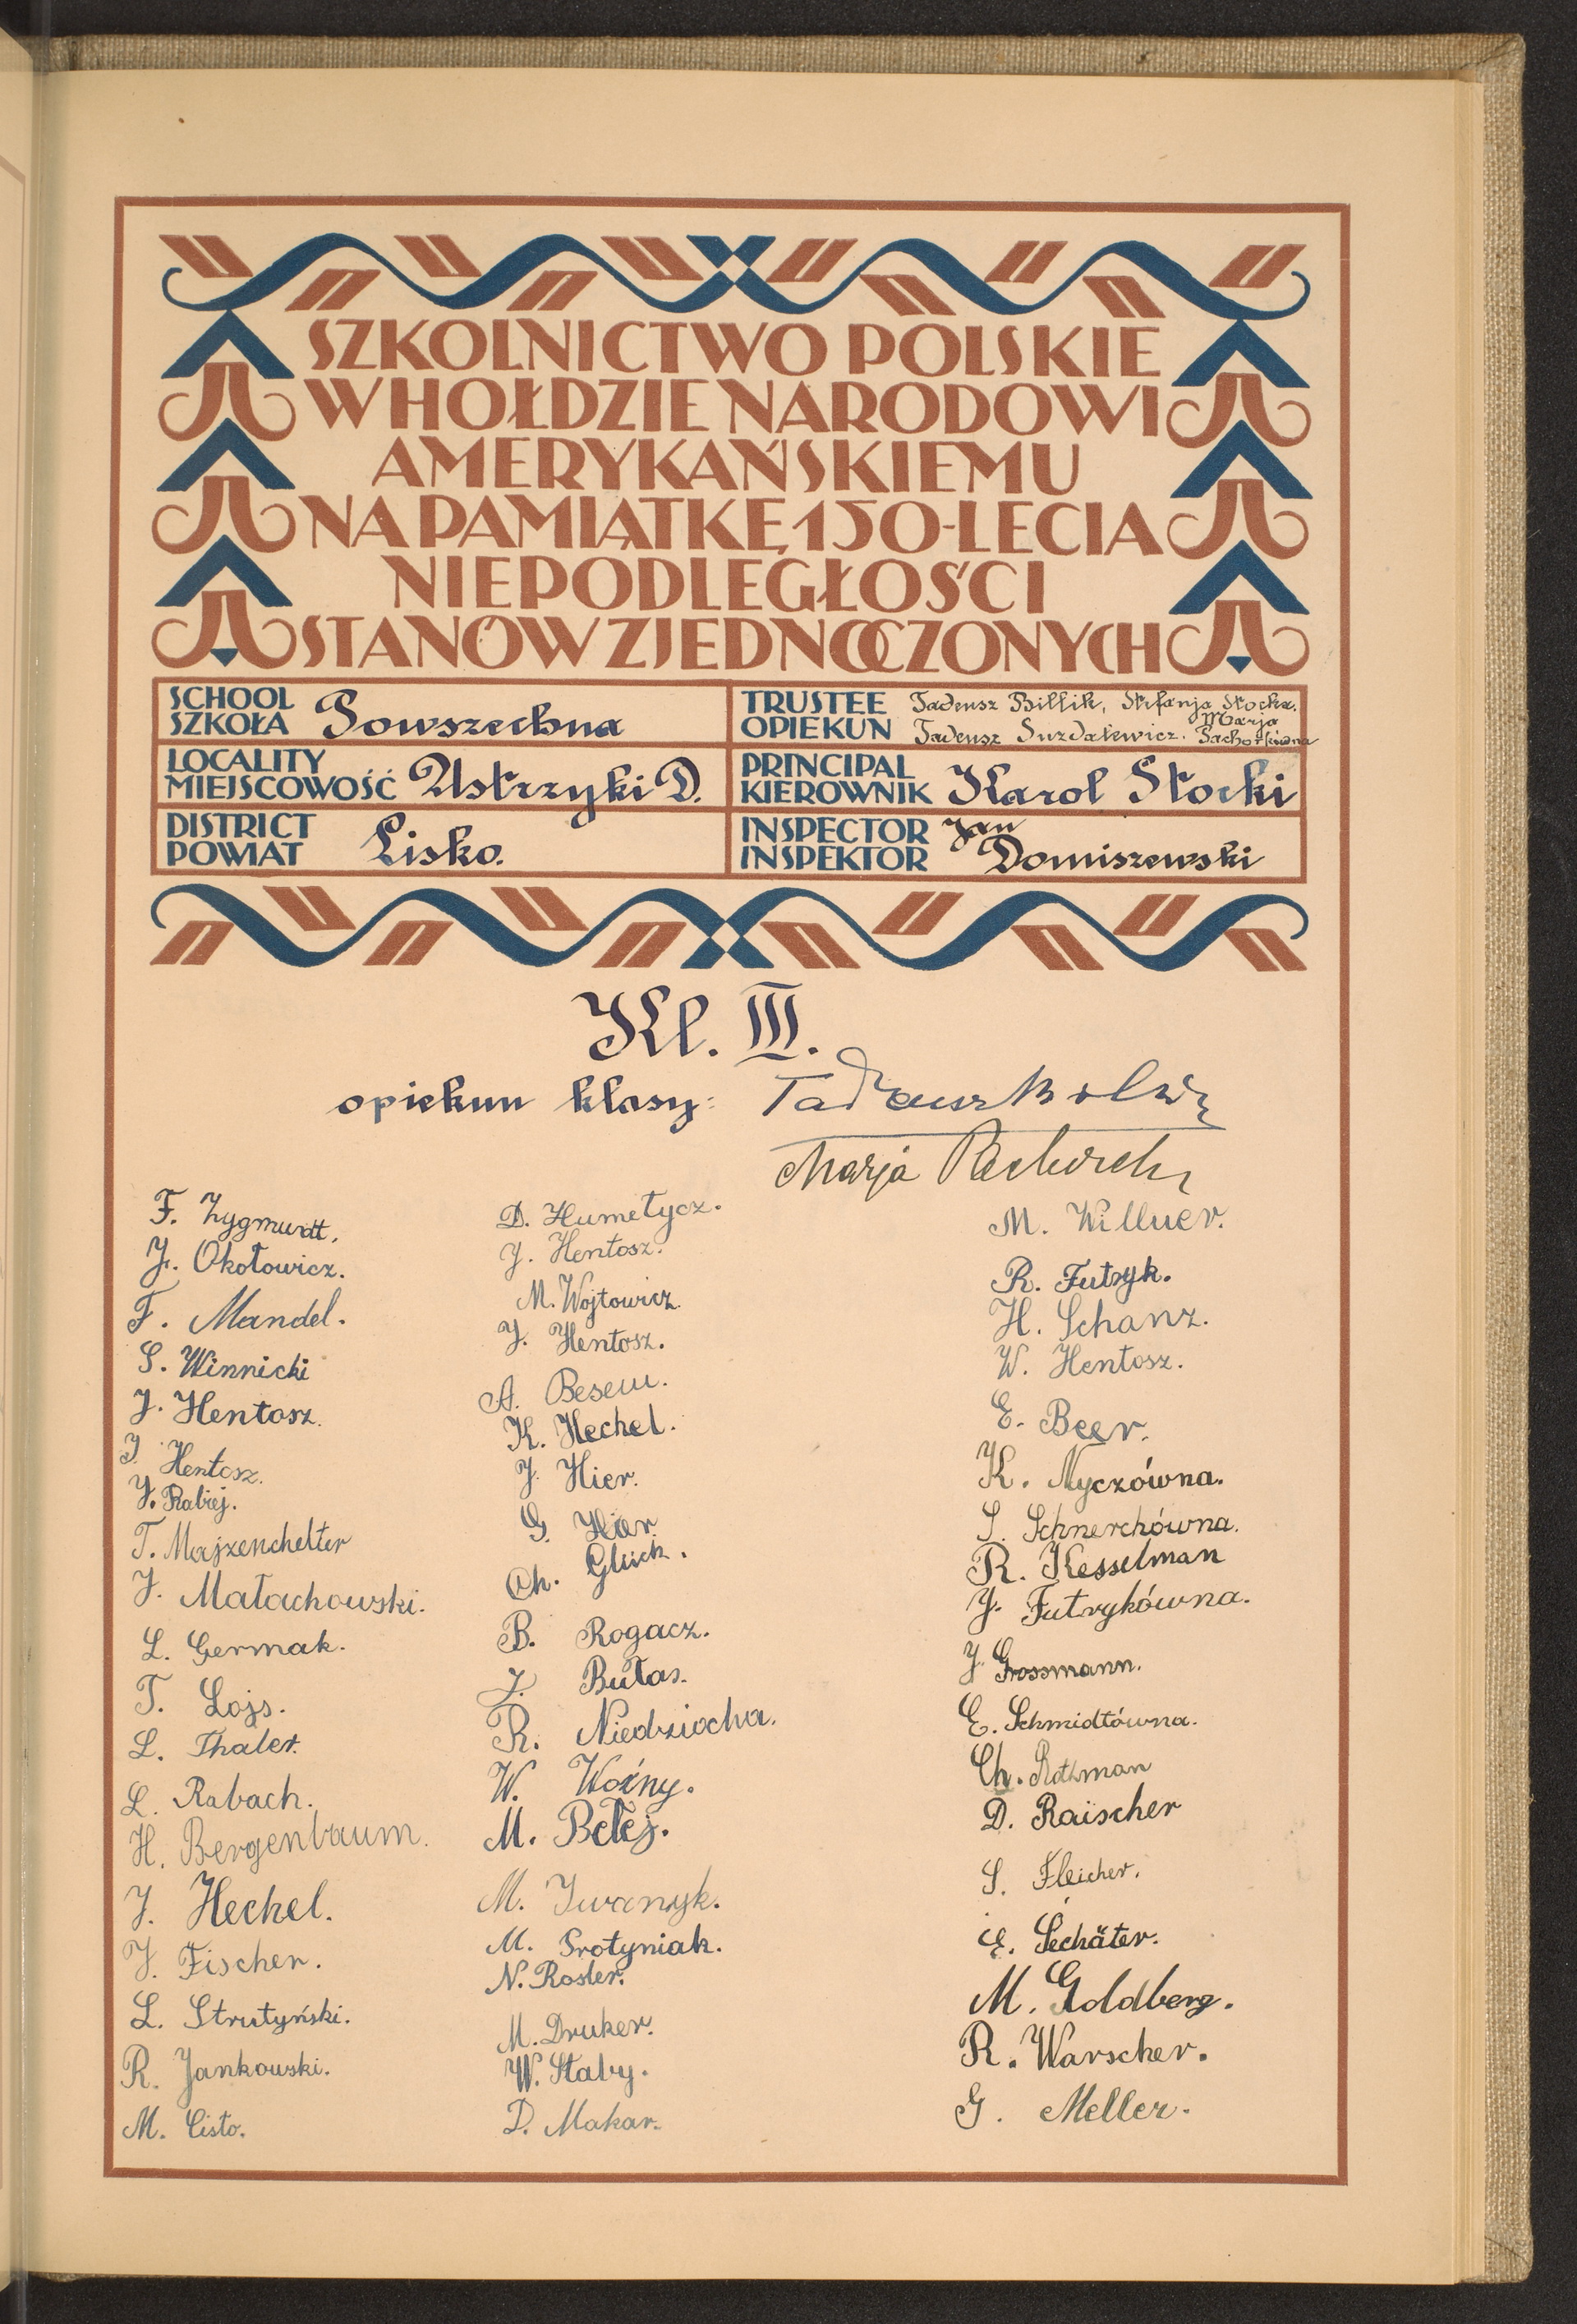 SZKOLNICTWO POLSKIE
W HOŁDZIE NARODOWI
AMERYKAŃSKIEMU
NA PAMIĄTKĘ 150-LECIA
NIEPODLEGŁOŚCI
STANÓW ZJEDNOCZONYCH
SCHOOL
SZKOŁA Powszechna
LOCALITY
MIEJSCOWOŚĆ Ustrzyki D.
DISTRICT
POWIAT Lisko.
TRUSTEE Tadeusz Billik, Stefanja Stocka.
Marja
OPIEKUN Tadeusz Suzdalewicz.
PRINCIPAL
KIEROWNIK Karol Stocki
INSPECTOR Jan
INSPEKTOR Domiszewski
Kl. III.
opiekun klasy: Tadeusz
Marja
F. Zygmundt.
J. Okołowicz.
F. Mandel.
S. Winnicki
J. Hentosz.
J. Hentosz.
J. Rabiej.
T. Majzenchelter
J. Małachowski.
L. Germak.
T. Lojs.
L. Thaler.
L. Rabach.
H. Bergenbaum.
J. Hechel.
J. Fischer.
L. Strutyński.
R. Jankowski.
M. Cisto.
D. Humetycz.
J. Hentosz.
M. Wojtowicz.
J. Hentosz.
A. Besem.
K. Hechel.
J. Hier.
G. Hier.
Ch. Glück.
B. Rogacz.
J. Bułas.
R. Niedziocha.
W. Woźny.
M. Bełej.
M. Iwanyk.
M. Protyniak.
N. Rosler.
M. Druker.
W. Słaby.
D. Makar.
M. Willner.
R. Futryk.
H. Schanz.
W. Hentosz.
E. Beer.
K. Nyczówna.
S. Schnerchówna.
R. Kesselman
J. Futrykówna.
J. Grossmann.
E. Schmidtówna.
Ch. Rothman
D. Raischer
S. Fleicher.
E. Sechäter.
M. Goldberg.
R. Warscher.
G. Meller.